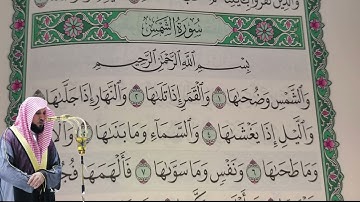 سُورَةُ الشَّمْسِ
بِسْمِ اللَّهِ الرَّحْمَٰنِ الرَّحِيمِ
وَالشَّمْسِ وَضُحَىٰهَا ١ وَالْقَمَرِ إِذَا تَلَىٰهَا ٢ وَالنَّهَارِ إِذَا جَلَّىٰهَا
وَاللَّيْلِ إِذَا يَغْشَىٰهَا ٤ وَالسَّمَاءِ وَمَا بَنَىٰهَا
وَمَا طَحَىٰهَا ٦ وَنَفْسٍ وَمَا سَوَّىٰهَا ٧ فَأَلْهَمَهَا